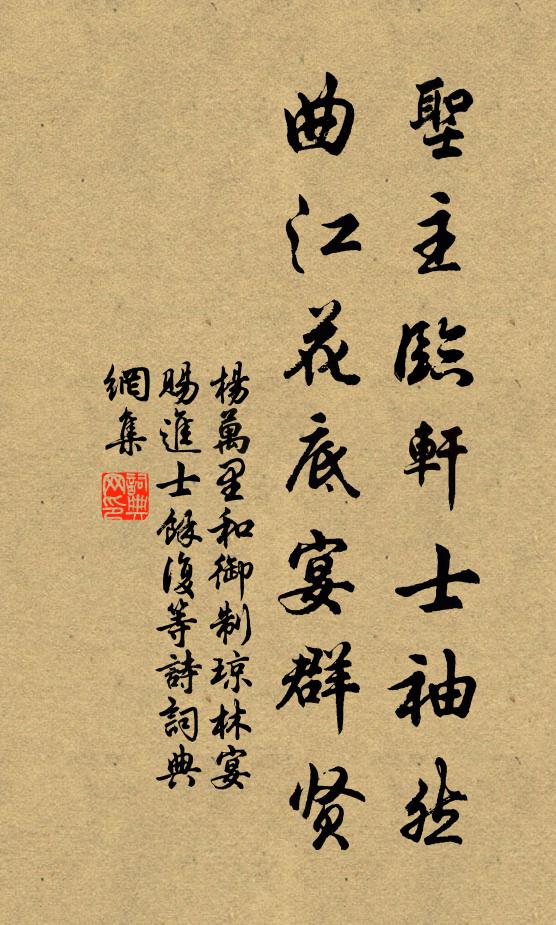 聖主臨軒士袖然
曲江花底宴群贤
楊萬里和御制琼林宴
賜進士餘復等詩詞典
網集
詞典網印